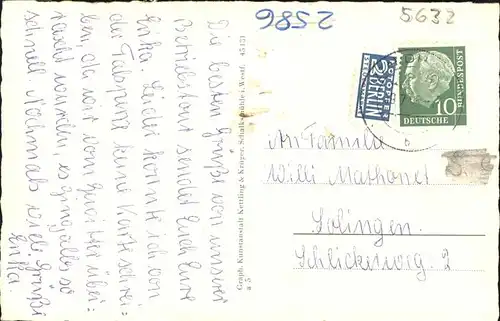 2586
5632
Die besten Grüße von unserer
Betriebstour sendet Euch Eure
Erika. Leider konnte ich von
der Talsperre keine Karte schrei=
ben, da wir vom Gewitter über=
rascht wurden, es ging alles so
schnell. Nochmals viele Grüße
Erika.
Graph. Kunstanstalt Kettling & Krüger, Schalksmühle i. Westf. 45151
a 5
NOTOPFER
2 BERLIN
STEUERMARKE
10
DEUTSCHE
BUNDESPOST
An Familie
Willi Mathonet
Solingen
Schlickerweg 2